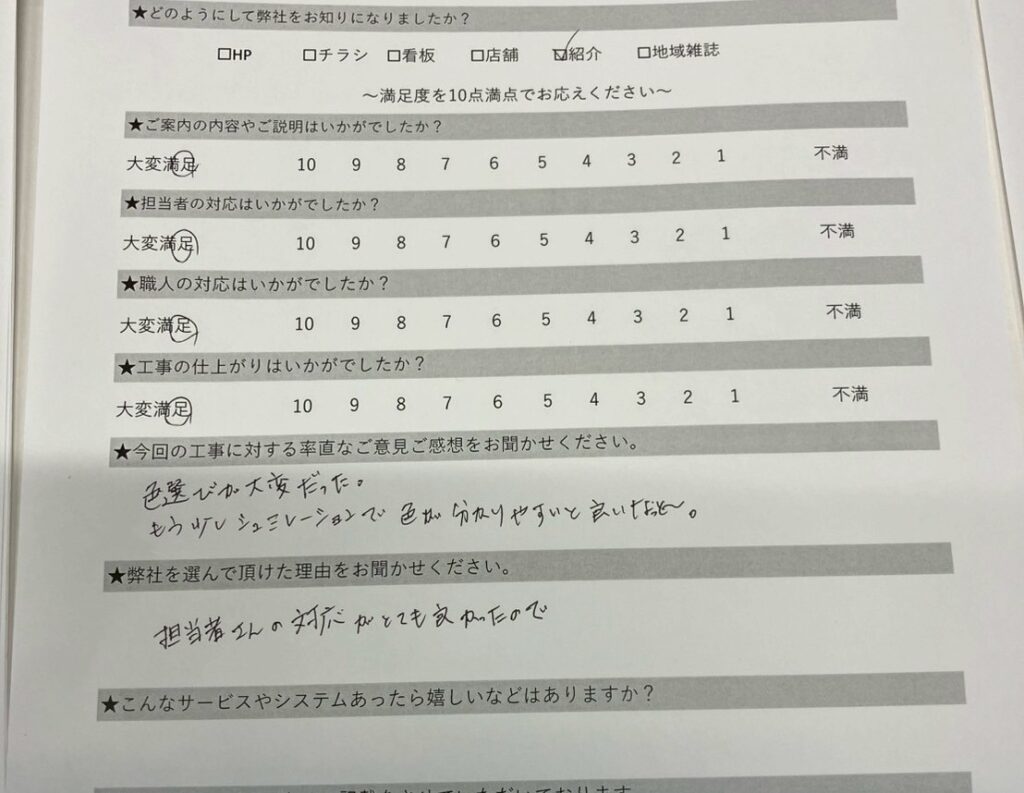 ★どのようにして弊社をお知りになりましたか?
□HP □チラシ □看板 □店舗 ☑紹介 □地域雑誌
~満足度を10点満点でお応えください~
★ご案内の内容やご説明はいかがでしたか?
大変満足 10 9 8 7 6 5 4 3 2 1 不満
★担当者の対応はいかがでしたか?
大変満足 10 9 8 7 6 5 4 3 2 1 不満
★職人の対応はいかがでしたか?
大変満足 10 9 8 7 6 5 4 3 2 1 不満
★工事の仕上がりはいかがでしたか?
大変満足 10 9 8 7 6 5 4 3 2 1 不満
★今回の工事に対する率直なご意見ご感想をお聞かせください。
色選びが大変だった。
もう少しシュミレーションで色が分かりやすいと良いなっと〜。
★弊社を選んで頂けた理由をお聞かせください。
担当者さんの対応がとても良かったので
★こんなサービスやシステムあったら嬉しいなどはありますか?